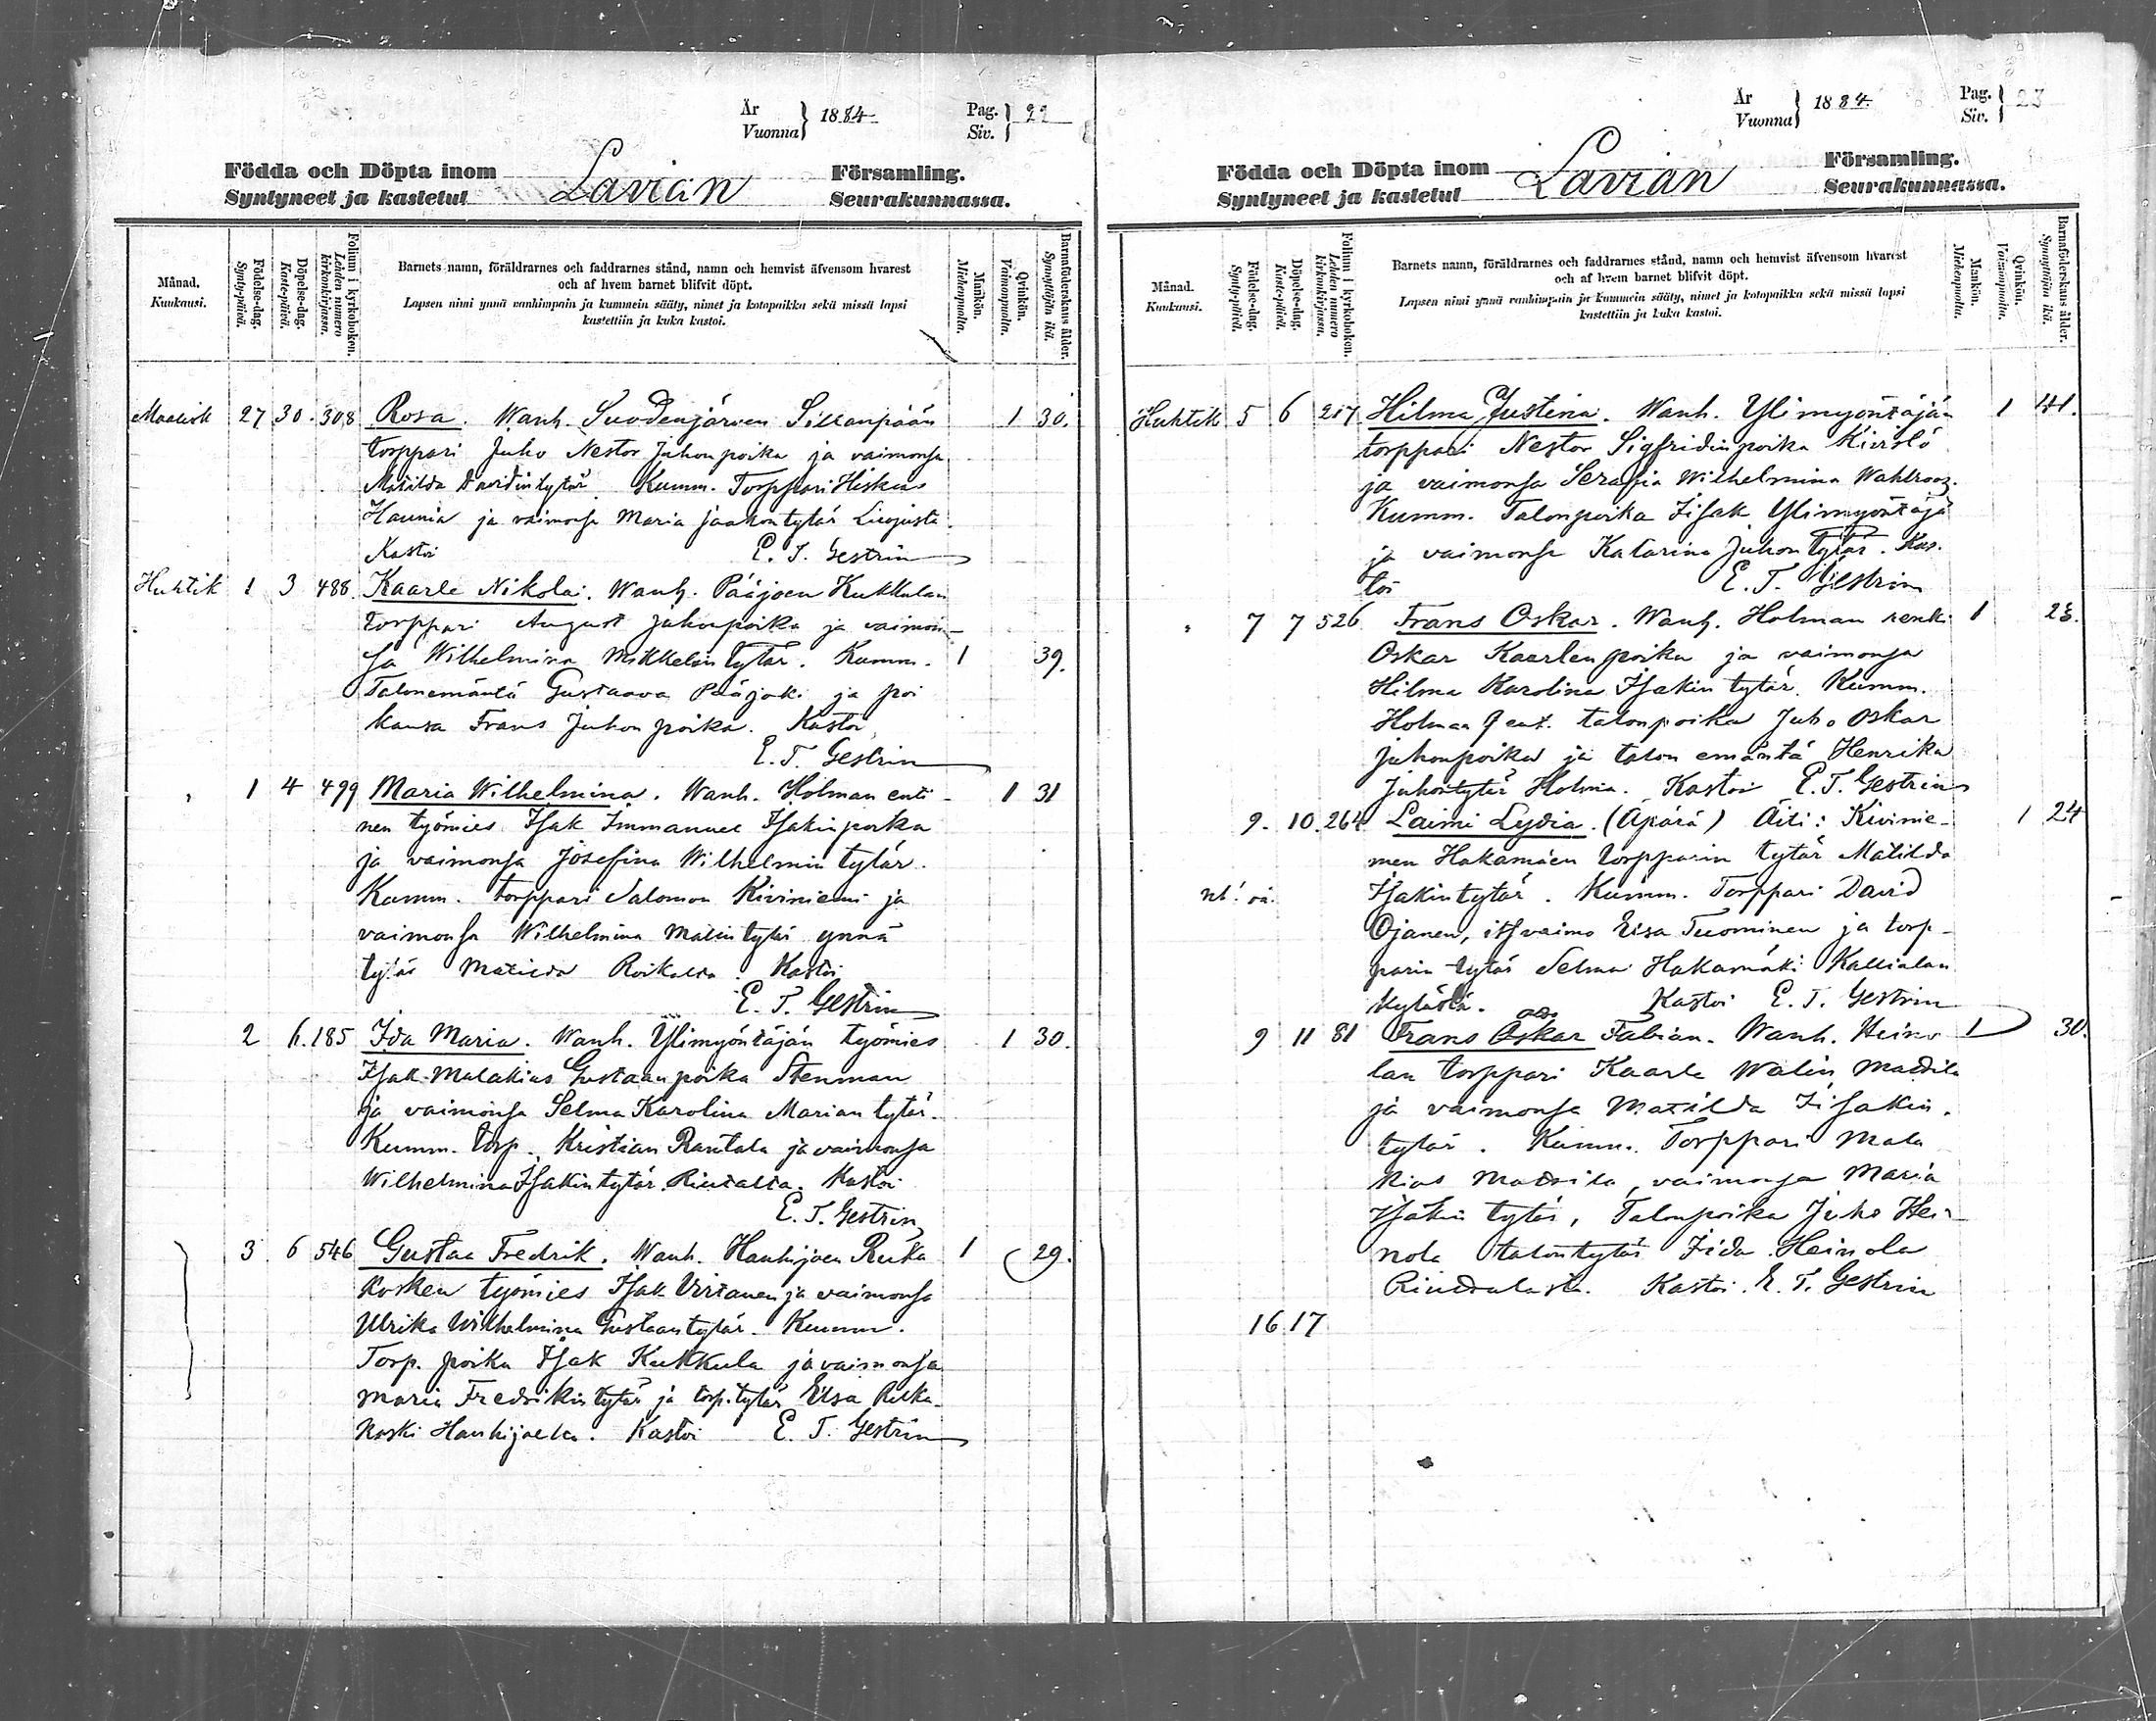 År Vuonna } 1884 Pag. Siv. } 22
Födda och Döpta inom Församling.
Syntyneet ja kastetut Lavian Seurakunnassa.
Månad. Kuukausi.
Födelse-dag. Synty-päivä.
Döpelse-dag. Kaste-päivä.
Folium i kyrkoboken. Lehden numero kirkonkirjassa.
Barnets namn, föräldrarnes och faddrarnes stånd, namn och hemvist äfvensom hvarest
och af hvem barnet blifvit döpt.
Lapsen nimi ynnä vanhimpain ja kummein sääty, nimet ja kotopaikka sekä missä lapsi
kastettiin ja kuka kastoi.
Mankön. Miehenpuolta.
Qvinkön. Vaimonpuolta.
Barnaföderskans ålder. Synnyttäjän ikä.
Maalisk 27 30. 308 Rosa. Wanh. Suodenjärven Sillanpään 1 30.
torppari Juho Nestor Juhonpoika ja vaimonsa
Matilda Davidintytär. Kumm. Torppari Hiskias
Haunia ja vaimonsa Maria Jaakontytär
Kastoi E. T. Gestrin
Huhtik 1 3 488. Kaarle Nikolai. Wanh. Pääjoen Kukkulan
torppari August Juhonpoika ja vaimon-
sa Wilhelmina Mikkelintytär. Kumm. 1 39.
Talonemäntä Gustaava Pääjoki ja poi
kansa Frans Juhonpoika. Kastoi
E. T. Gestrin
" 1 4 499 Maria Wilhelmina. Wanh. Holman enti- 1 31
nen työmies Isak Immanuel Isakinpoika
ja vaimonsa Josefina Wilhelmin tytär.
Kumm. torppari Salomon Kiviniemi ja
vaimonsa Wilhelmina Matintytär ynnä
tytär Matilda. Kastoi
E. T. Gestrin
2 6. 185 Ida Maria. Wanh. Ylimyöntäjän työmies 1 30.
Isak Malakias Gustaanpoika Stenman
ja vaimonsa Selma Karolina Marian tytär.
Kumm. torp. Kristian Rantala ja vaimonsa
Wilhelmina Isakintytär. Kastoi
E. T. Gestrin
3 6 546 Gustaa Fredrik. Wanh. Hanhijoen Reika 1 29.
kosken työmies Isak Virtanen ja vaimonsa
Ulrika Wilhelmina Gustaantytär. Kumm.
Torp. poika Isak Kukkula ja vaimonsa
Maria Fredrikintytär ja torp. tytär Elsa Reika-
koski Hanhijoelta. Kastoi E. T. Gestrin
År Vuonna } 1884. Pag. Siv. } 23
Födda och Döpta inom Församling.
Syntyneet ja kastetut Lavian Seurakunnassa.
Månad. Kuukausi.
Födelse-dag. Synty-päivä.
Döpelse-dag. Kaste-päivä.
Folium i kyrkoboken. Lehden numero kirkonkirjassa.
Barnets namn, föräldrarnes och faddrarnes stånd, namn och hemvist äfvensom hvarest
och af hvem barnet blifvit döpt.
Lapsen nimi ynnä vanhimpain ja kummein sääty, nimet ja kotopaikka sekä missä lapsi
kastettiin ja kuka kastoi.
Mankön. Miehenpuolta.
Qvinkön. Vaimonpuolta.
Barnaföderskans ålder. Synnyttäjän ikä.
Huhtik 5 6 217 Hilma Justina. Wanh. Ylimyöntäjän 1 41.
torppari Nestor Sigfridinpoika
ja vaimonsa Serafia Wilhelmina Wahlroos.
Kumm. Talonpoika Iisak Ylimyöntäjä
ja vaimonsa Katarina Juhontytär. Kas-
toi E. T. Gestrin
" 7 7 526 Frans Oskar. Wanh. Holman renki 1 23.
Oskar Kaarlenpoika ja vaimonsa
Hilma Karolina Isakin tytär. Kumm.
Holman talonpoika Juho Oskar
Juhonpoika ja talon emäntä Henrika
Juhontytär Holma. Kastoi E. T. Gestrin
9. 10. 264 Laimi Lydia. (Äpärä) Äiti: Kivinie- 1 24
men Hakamäen torpparin tytär Matilda
Isakintytär. Kumm. Torppari David
Ojanen, itsvaimo Eisa Tuominen ja torp-
parin tytär Selma Hakamäki Kallialan
kylästä. Kastoi E. T. Gestrin
9 11 81 Frans Oskar Fabian. Wanh. Heino 1 30.
lan torppari Kaarle Walin Mattila
ja vaimonsa Matilda Iisakin
tytär. Kumm. Torppari Mala
kias Mattila, vaimonsa Maria
Isakin tytär, Talonpoika Juho Hei-
nola talontytär Iida Heinola
Riudalasta. Kastoi. E. T. Gestrin
16 17